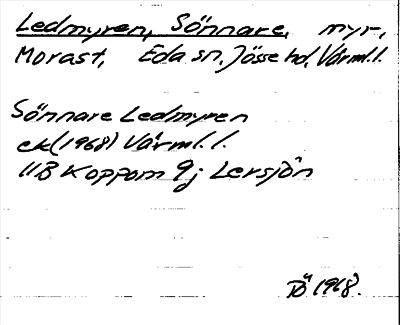 Ledmyren, Sönnare, myr,
Morast, Eda sn, Jösse hd, Värml. l.
Sönnare Ledmyren
ek (1968) Värml. l.
11B Koppom 9j Lersjön
PÖ 1968.